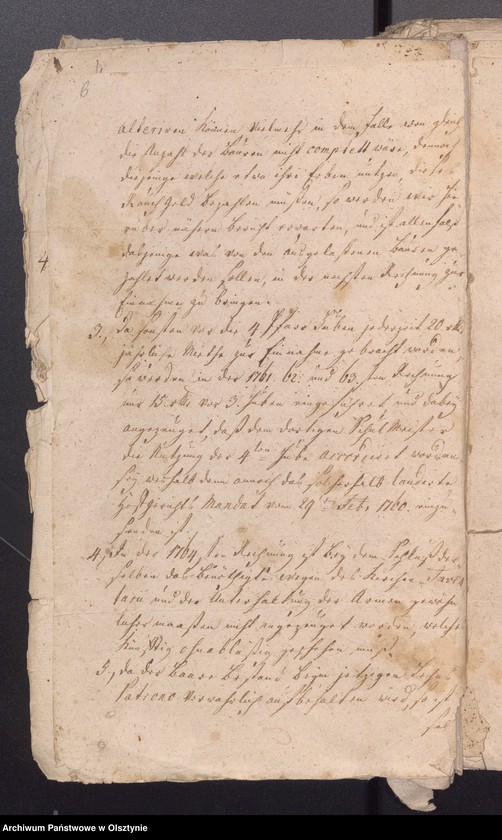 6
alteriren können, Vielmehr in dem Falle wenn gleich
die Anzahl der Bauren nicht complett wäre, dennoch
diejenige welche etwa ihre Erben nutzen, diese
Rauch Geld bezahlen müßen, so werden wir hie-
rüber nähern Bericht erwarten, und ist allenfalß
dasjenige was von den ausgelaßenen Bauren ge-
zahlet werden sollen, in der nechsten Rechnung zur
Einnahme zu bringen.
4
3., Da sonsten vor die 4 Pfarr Huben jederzeit 20 rtl.
jährliche Miethe zur Einnahme gebracht worden
so werden in der 1761. 62. und 63.ten Rechnung
nur 15 rtl. vor 3. Huben eingeführet und dabey
angezeuget, daß dem dortigen Schul Meister
die Nutzung der 4ten Hube accordiret worden
sey weshalb denn annoch das solcherhalb lautende
HoffGerichts Mandat vom 29ten Febr. 1760. einzu-
senden ist.
4., In der 1764.ten Rechnung ist bey dem Schluß der-
selben das Benöthigte wegen des Kirchen
und der Unterhaltung der Armen gewöhn-
licher maaßen nicht angezeuget worden, welches
künfftig ohnabläßig geschehen muß.
5., Da der Baare Bestand beym jetzigen
Patrono verwahrlich aufbehalten wird, so ist
Archiwum Państwowe w Olsztynie